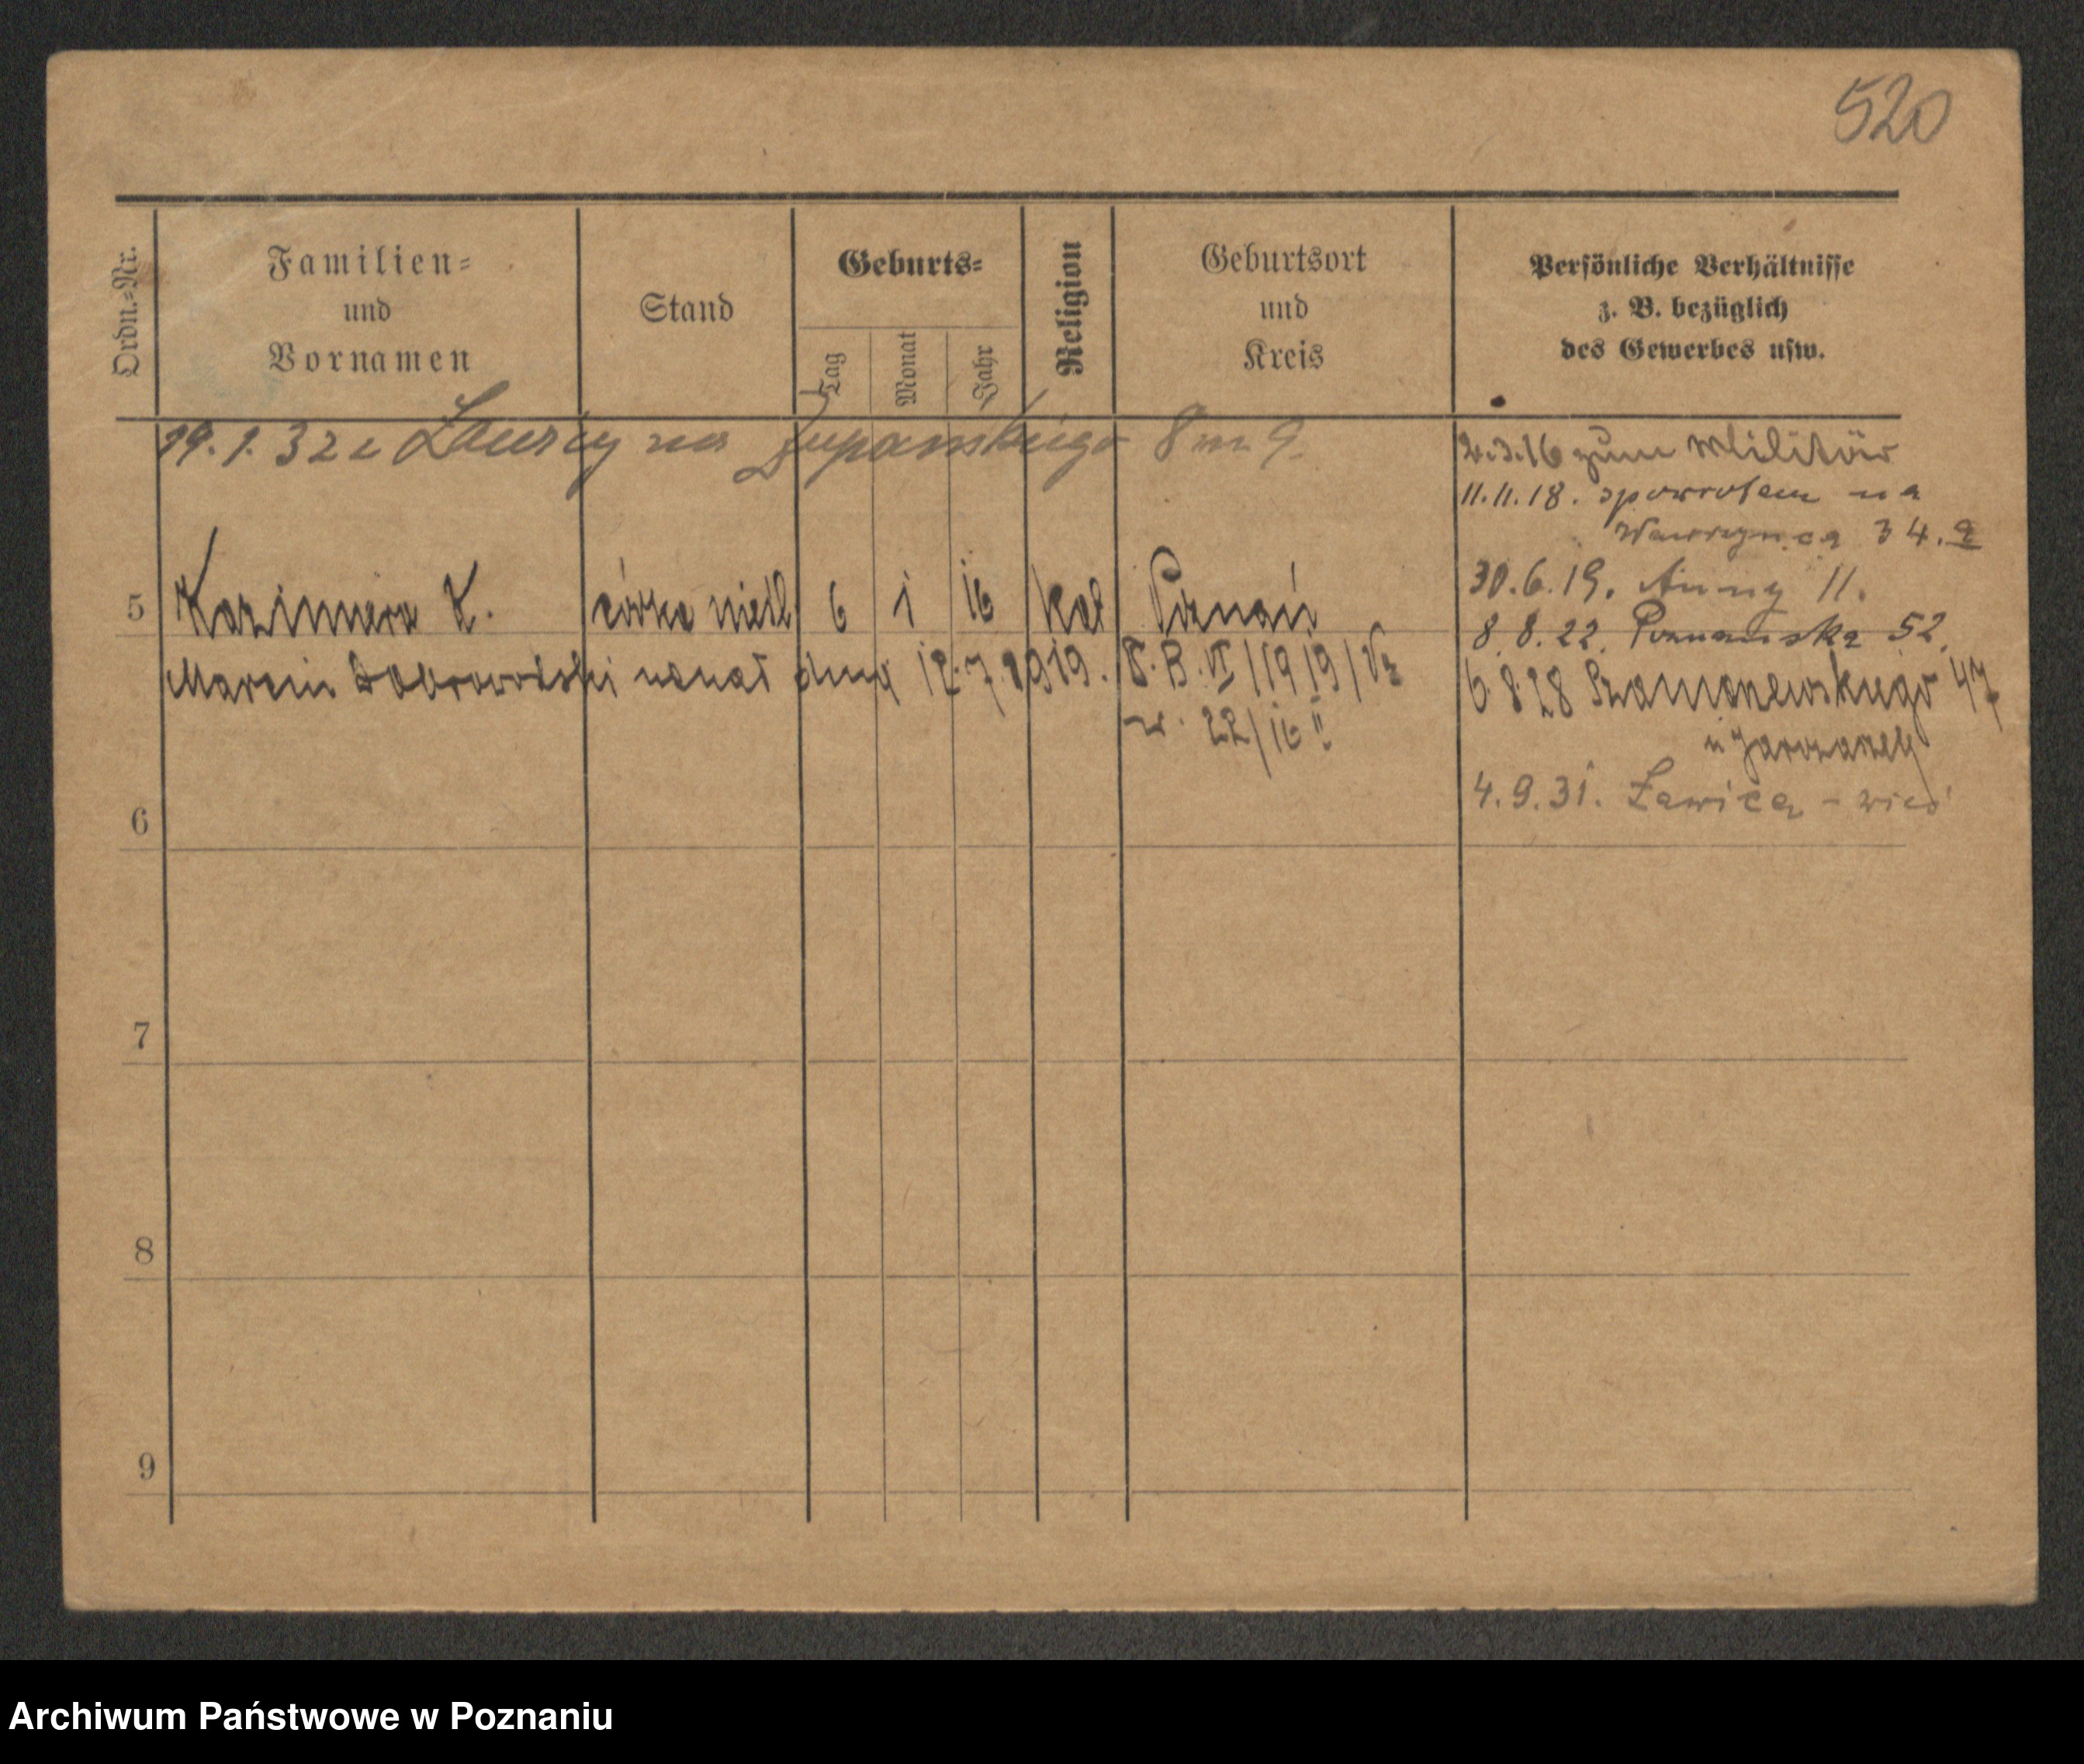 520
Ordn.=Nr.
Familien=
und
Vornamen
Stand
Geburts=
Tag
Monat
Jahr
Religion
Geburtsort
und
Kreis
Persönliche Verhältnisse
z. B. bezüglich
des Gewerbes usw.
19.1.32 z Ławicy na Żupańskiego 8 m 9.
2.3.16 zum Militär
11.11.18. spowrotem na
Wawrzyńca 34.
30.6.19. Anny 11.
5 Kazimiera K. córka 6 1 16 kat Poznań
8.8.22. Poznańska 52.
Marcin Dobrowolski uznał dnia 12.7.1919. K.B. VI/1919/
6.8.28 Szamarzewskiego 47
22/16 II
u
4.9.31. Ławica - wieś
6
7
8
9
Archiwum Państwowe w Poznaniu